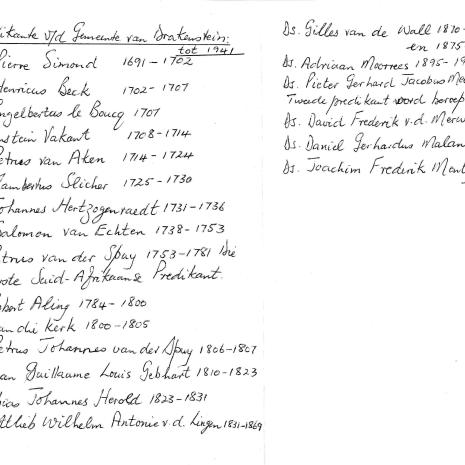 ikante v/d Gemeente van Drakenstein:
tot 1941
Pierre Simond 1691-1702
Henricus Beck 1702-1707
ngelbertus le Boucq 1707
nstein Vakant 1708-1714
etrus van Aken 1714-1724
ambertus Slicher 1725-1730
Johannes Hertzogenraedt 1731-1736
Salomon van Echten 1738-1753
etrus van der Spuy 1753-1781 Die
rste Suid-Afrikaanse Predikant.
obert Aling 1784-1800
kerk 1800-1805
etrus Johannes van der Spuy 1806-1807
an Guillaume Louis Gebhart 1810-1823
bias Johannes Herold 1823-1831
ttlieb Wilhelm Antonie v.d. Lingen 1831-1869
Ds. Gilles van de Wall 1870-
en 1875
Ds. Adriaan Moorrees 1895-19
Ds. Pieter Gerhard Jacobus Me
Tweede predikant word beroep
Ds. David Frederik v.d. Merw
Ds. Daniel Gerhardus Malan
Ds. Joachim Frederik Ment